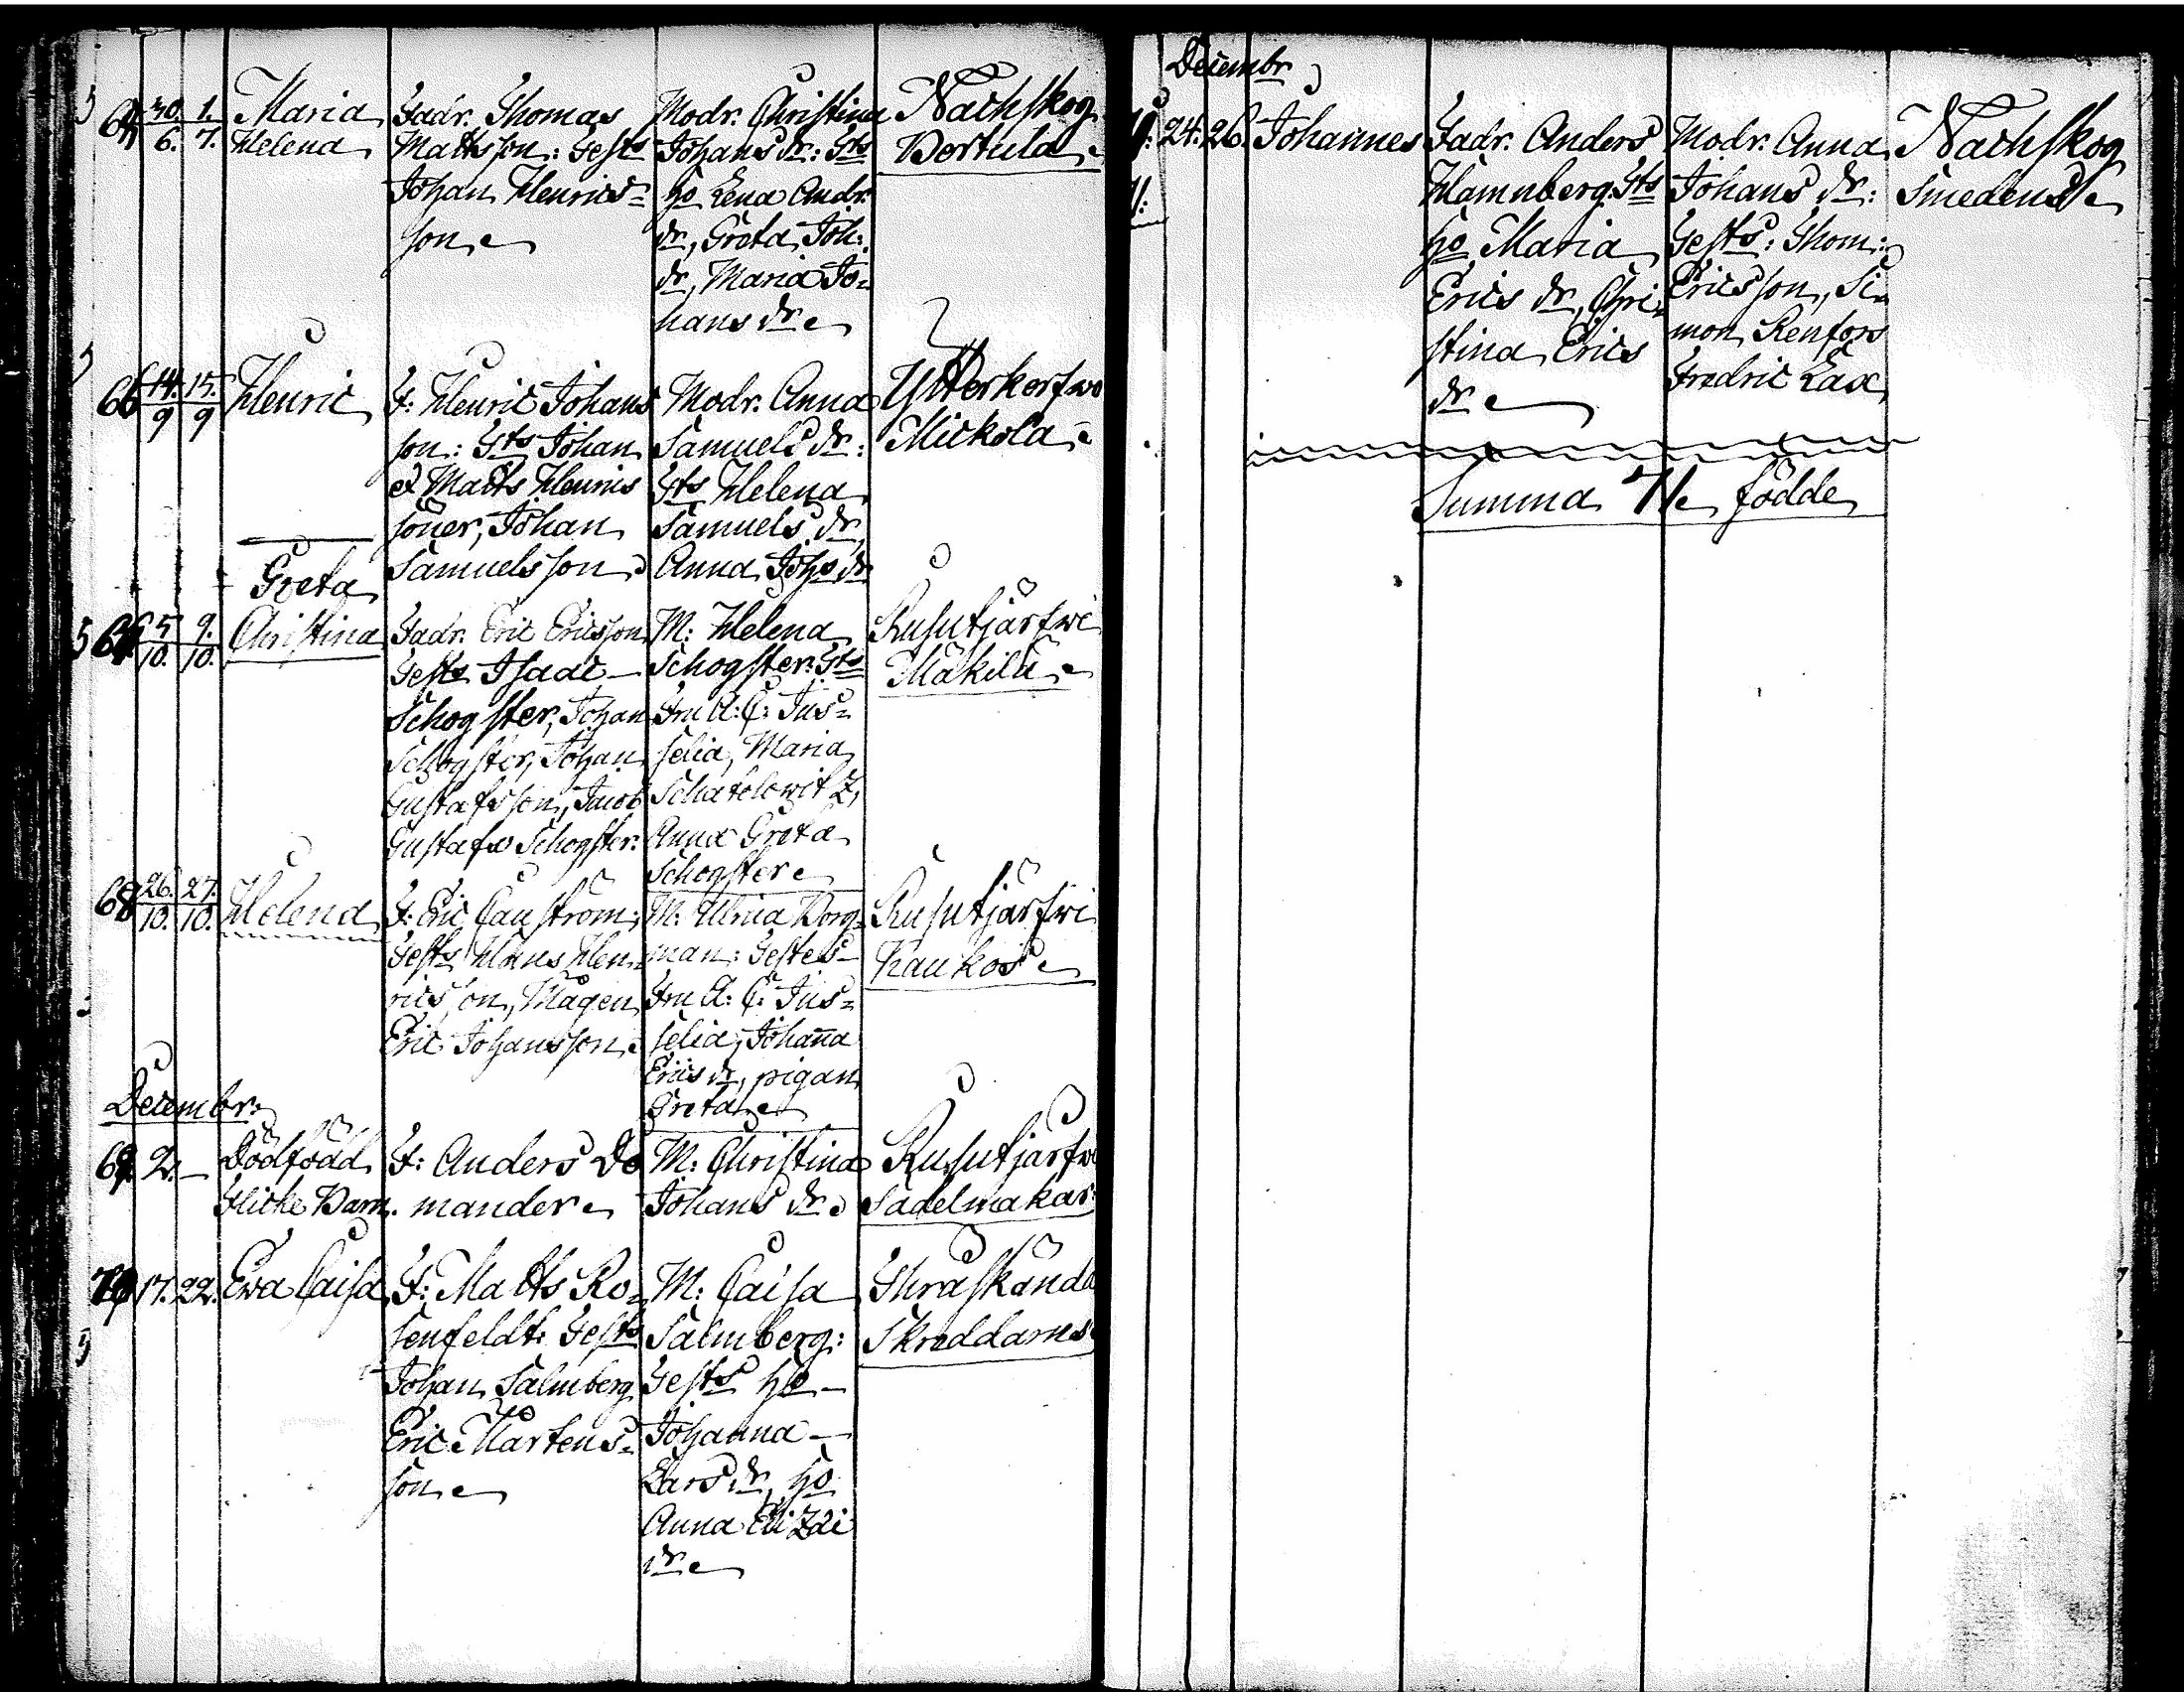 30. 1.
6. 7.
Maria
Helena
Fadr. Thomas
Mattsson: Gests
Johan Henrics=
son
Modr. Christina
Johans dr: Gts
ho Lena Andr:
dr, Greta Joh:
dr, Maria Jo=
hans dr
Nachskog
Bertula
66
14. 15.
9 9
Henric
F: Henric Johans
son: Gts Johan
& Matts Henrics
söner, Johan
Samuelsson
Modr. Anna
Samuels dr:
Gts Helena
Samuels dr,
Anna Johs dr
Ytterkerfwe
Mickola
Greta
Christina
5 9.
10. 10.
Fadr. Eric Ericsson
Gests Isaac
Schogster, Johan
Schogster, Johan
Gustafsson, Jacob
Gustafss Schogster.
M: Helena
Schogster: Gts
Fru A: C: Jus=
selia, Maria
Schatelowitz,
Anna Greta
Schogster
Rusutjärfwi
Mäkilä
68
26. 27.
10. 10.
Helena
F: Eric Causström:
Gests Hans Hen=
ricsson, Mågen
Eric Johansson
M: Ulrica Borg=
man: Gestes
Fru A: C: Jus=
selia, Johana
Erics dr, pigan
Greta
Rusutjärfwi
Kaukois
Decembr:
69. 2. —
Dödfödd
Flicke Barn.
F: Anders Do
mander
M: Christina
Johans dr
Rusutjärfwi
Sadelmakar:
70 17. 22.
Ewa Caisa
F: Matts Ro=
senfeldt: Gests
Johan Salmberg
Eric Mårtens=
son
M: Caisa
Salmberg:
Gests ho
Johanna
Lars dr, ho
Anna
dr
Thräskända
Skreddares
Decembr
71: 24. 26.
Johannes
Fadr. Anders
Hamnberg: Gts
ho Maria
Erics dr, Chri=
stina Erics
dr
Modr. Anna
Johans dr:
Gests: Thom:
Ericsson, Si=
mon Renfors
Fredric Lax
Nachskog
Smedens
Summa 71 födde